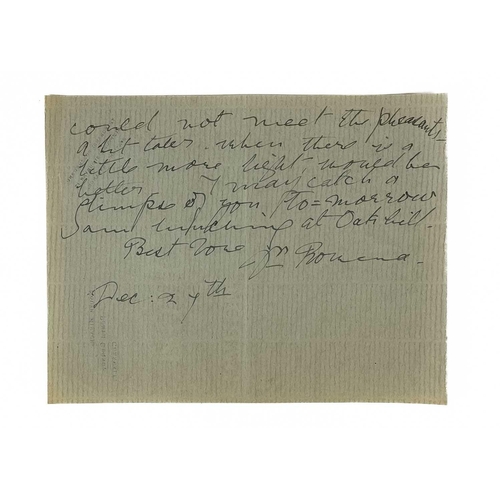 could not meet the pheasants
a bit later. when there is a
little more light would be
better I may catch a
glimpse of you to=morrow
I am lunching at Oakhill.
Best love
Dec: 27th